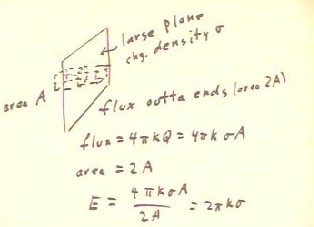 large plane
chg. density σ
area A
flux outta ends (area 2A)
flux = 4πkQ = 4πkσA
area = 2A
E = 4πkσA / 2A = 2πkσ